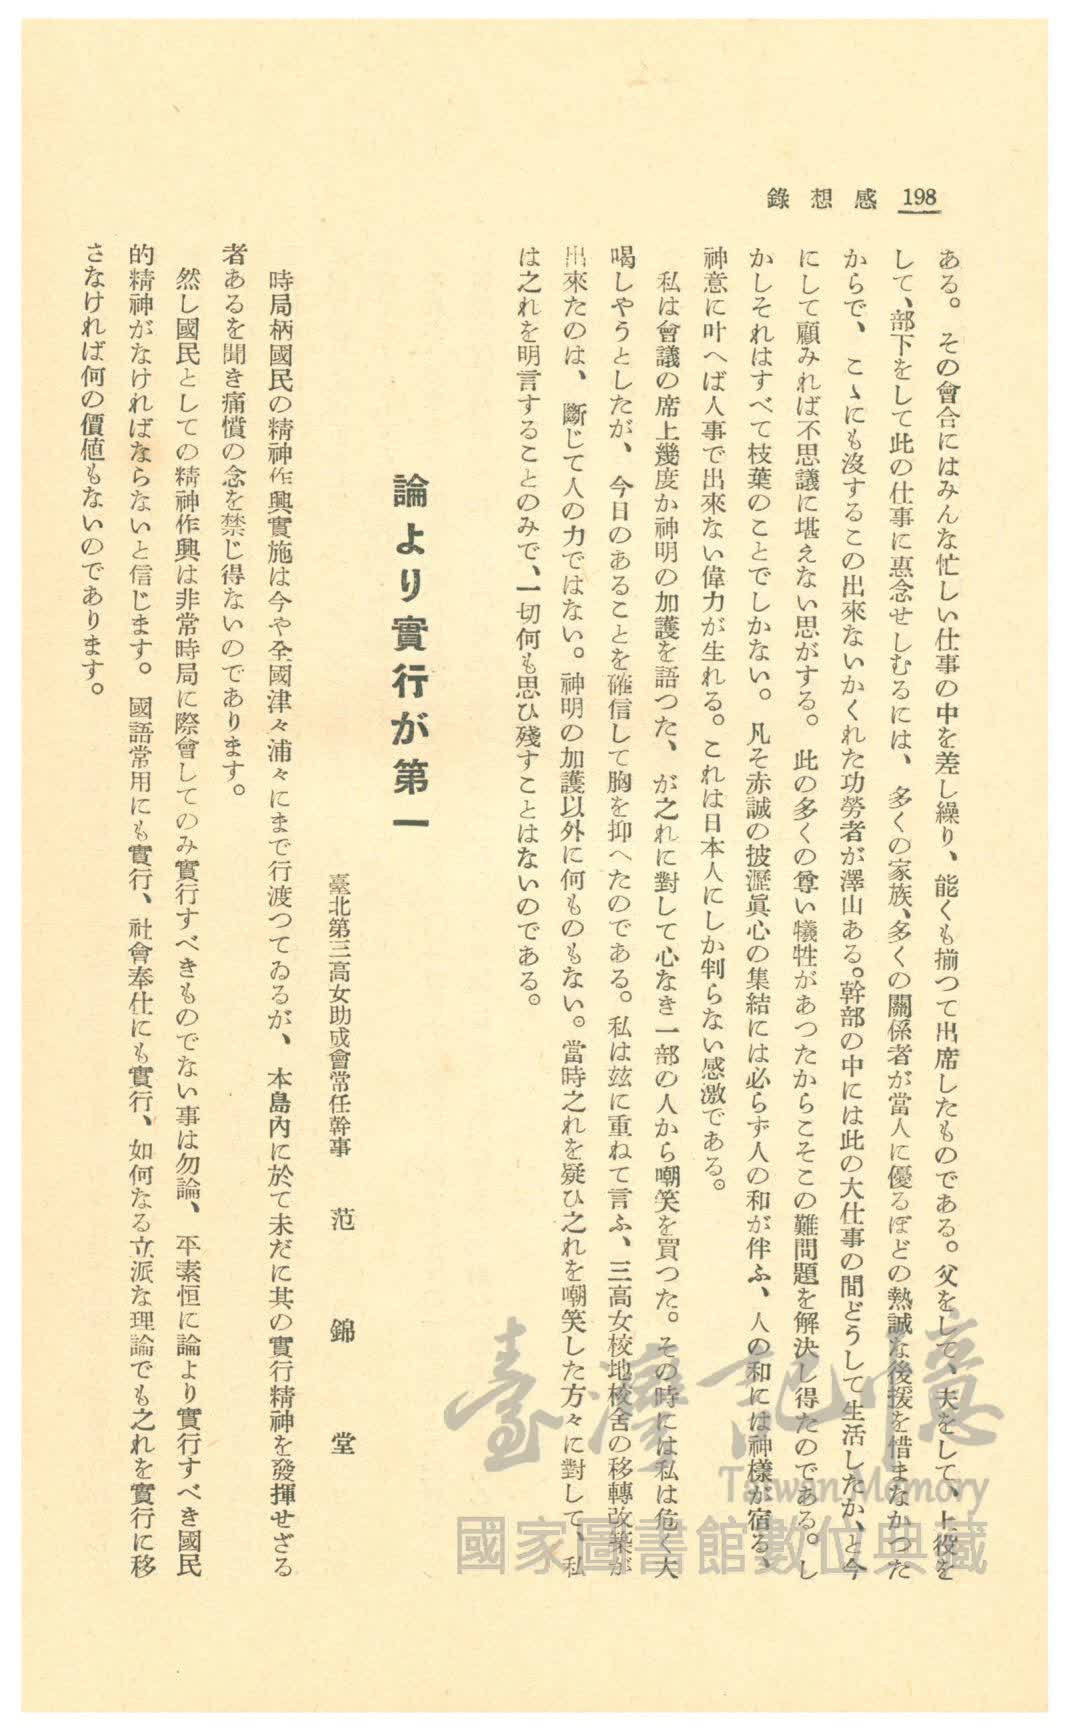 198 感想錄
ある。その會合にはみんな忙しい仕事の中を差し繰り、能くも揃つて出席したものである。父をして、夫をして、上役を
して、部下をして此の仕事に惠念せしむるには、多くの家族、多くの關係者が當人に優るほどの熱誠な後援を惜まなかつた
からで、こゝにも沒するこの出來ないかくれた功勞者が澤山ある。幹部の中には此の大仕事の間どうして生活したか、と今
にして顧みれば不思議に堪えない思がする。此の多くの尊い犧牲があつたからこそこの難問題を解決し得たのである。し
かしそれはすべて枝葉のことでしかない。凡そ赤誠の披瀝眞心の集結には必らず人の和が伴ふ、人の和には神樣が宿る、
神意に叶へば人事で出來ない偉力が生れる。これは日本人にしか判らない感激である。
私は會議の席上幾度か神明の加護を語つた、が之れに對して心なき一部の人から嘲笑を買つた。その時には私は危く大
喝しやうとしたが、今日のあることを確信して胸を抑へたのである。私は玆に重ねて言ふ、三高女校地校舍の移轉改築が
出來たのは、斷じて人の力ではない。神明の加護以外に何ものもない。當時之れを疑ひ之れを嘲笑した方々に對して、私
は之れを明言することのみで、一切何も思ひ殘すことはないのである。
論より實行が第一
臺北第三高女助成會常任幹事 范錦堂
時局柄國民の精神作興實施は今や全國津々浦々にまで行渡つてゐるが、本島內に於て未だに其の實行精神を發揮せざる
者あるを聞き痛憤の念を禁じ得ないのであります。
然し國民としての精神作興は非常時局に際會してのみ實行すべきものでない事は勿論、平素恒に論より實行すべき國民
的精神がなければならないと信じます。國語常用にも實行、社會奉仕にも實行、如何なる立派な理論でも之れを實行に移
さなければ何の價値もないのであります。
臺灣記憶
Taiwan Memory
國家圖書館數位典藏